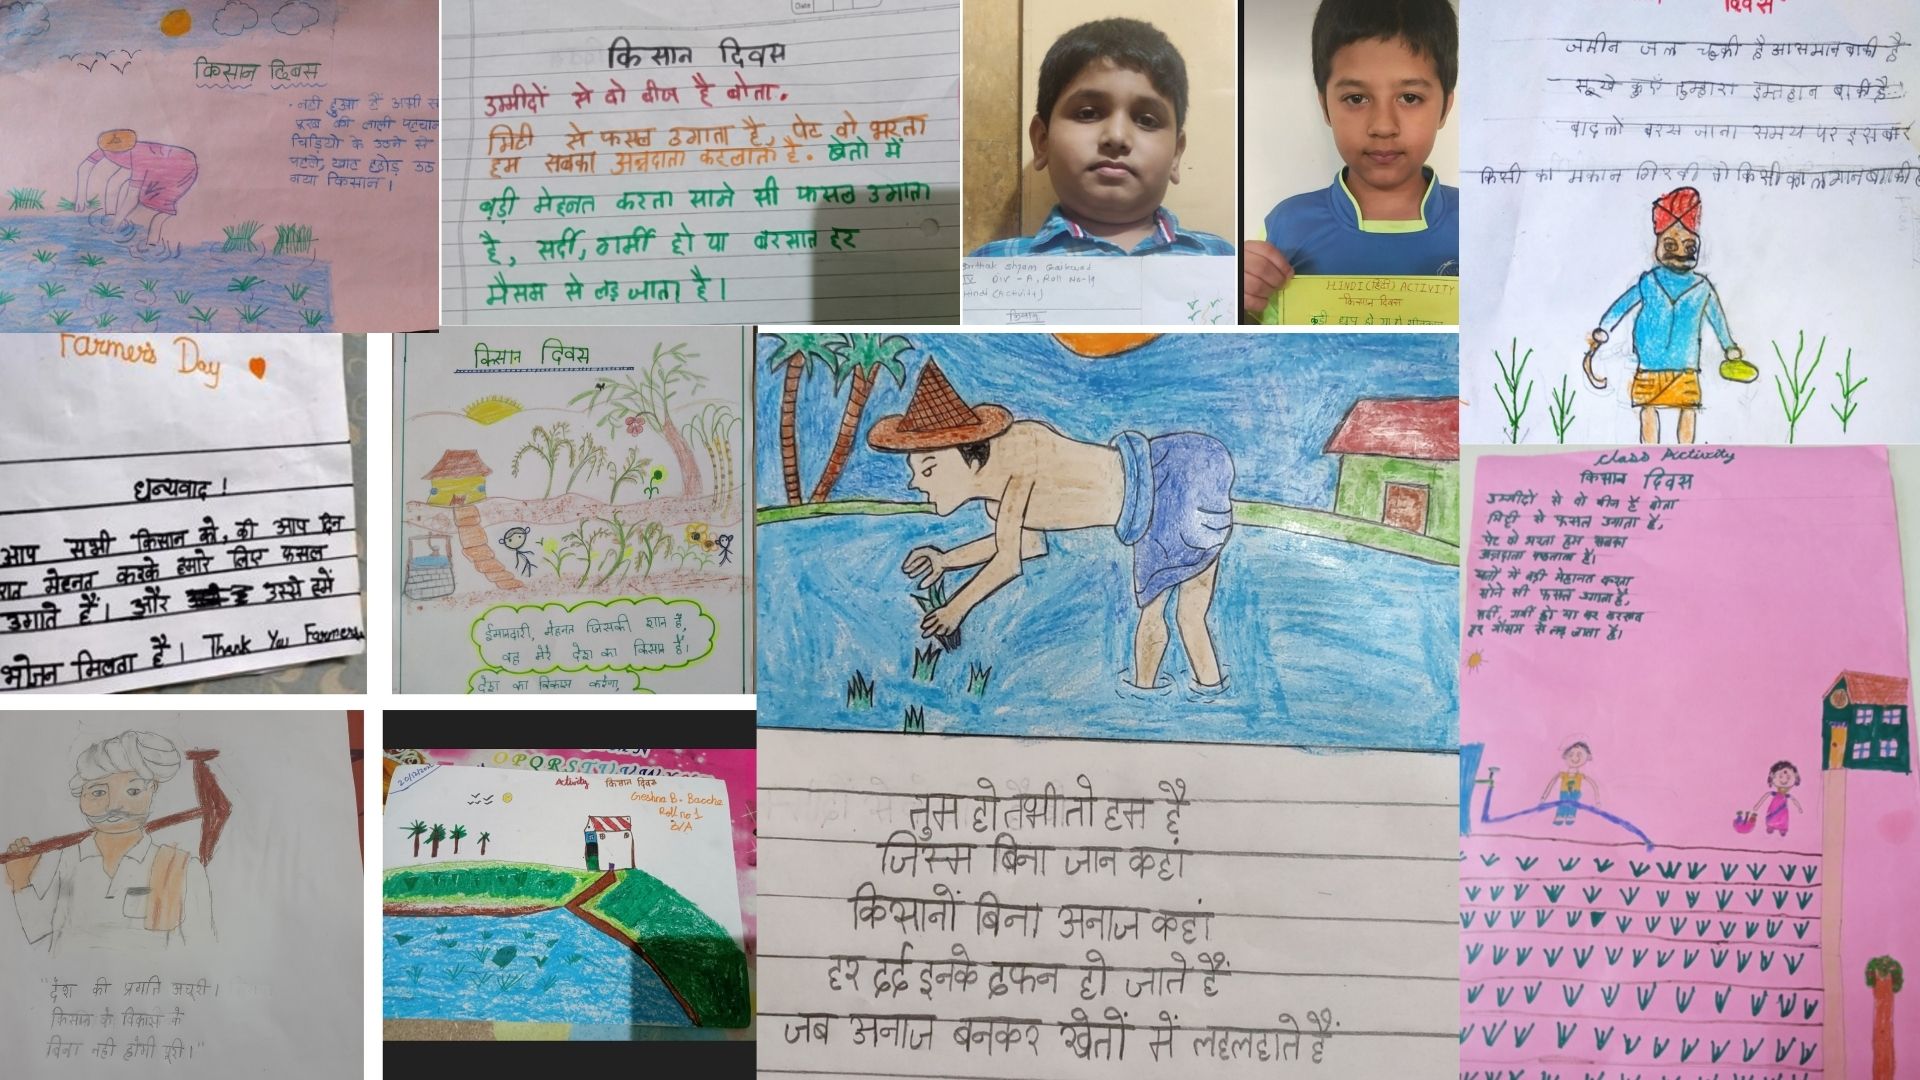 किसान दिवस
नही हुआ हैं अभी स
पूरब की लाली पहचान
चिड़ियो के उठने से
पहले, खाट छोड़ उठ
गया किसान।
किसान दिवस
उम्मीदों से वो बीज है बोता.
मिटी से फसल उगाता है, पेट वो भरता
हम सबका अन्नदाता कहलाता है. खेतो में
बड़ी मेहनत करता सोने सी फसल उगाता
है, सर्दी, गर्मी हो या बरसात हर
मौसम से लड़ जाता है।
Sarthak Shyam Gaikwad
IV Div - A, Roll No-19
Hindi (Activity)
किसान
HINDI (हिंदी) ACTIVITY
किसान दिवस
कड़ी धूप हो या हो शीतकाल
दिवस
जमीन जल चुकी है आसमान बाकी है
सूखे कुएँ तुम्हारा इम्तहान बाकी है
बादलों बरस जाना समय पर इस बार
किसी का मकान गिरवी तो किसी का लगान बाकी है
Farmer's Day
धन्यवाद !
आप सभी किसान को, की आप दिन
रात मेहनत करके हमारे लिए फसल
उगाते हैं। और उससे हमें
भोजन मिलता है। Thank You Farmers
किसान दिवस
ईमानदारी, मेहनत जिसकी शान है,
वह मेरे देश का किसान हैं।
देश का विकास करेगा,
Class Activity
किसान दिवस
उम्मीदों से वो बीज है बोता
मिट्टी से फसल उगाता है,
पेट वो भरता हम सबका
अन्नदाता कहलाता है।
खेतों में बड़ी मेहनत करता
सोने सी फसल उगाता है,
सर्दी, गर्मी हो या बरसात
हर मौसम से लड़ जाता है।
"देश की प्रगति अधूरी।
किसान के विकास के
बिना नही होगी पूरी।"
OPQRSTUVWX
Activity किसान दिवस
Greshna B. Bacche
Roll no 1
तुम हो तभी तो हम है
जिस्म बिना जान कहां
किसानों बिना अनाज कहां
हर दर्द इनके दफन हो जाते हैं
जब अनाज बनकर खेतों में लहलहाते हैं